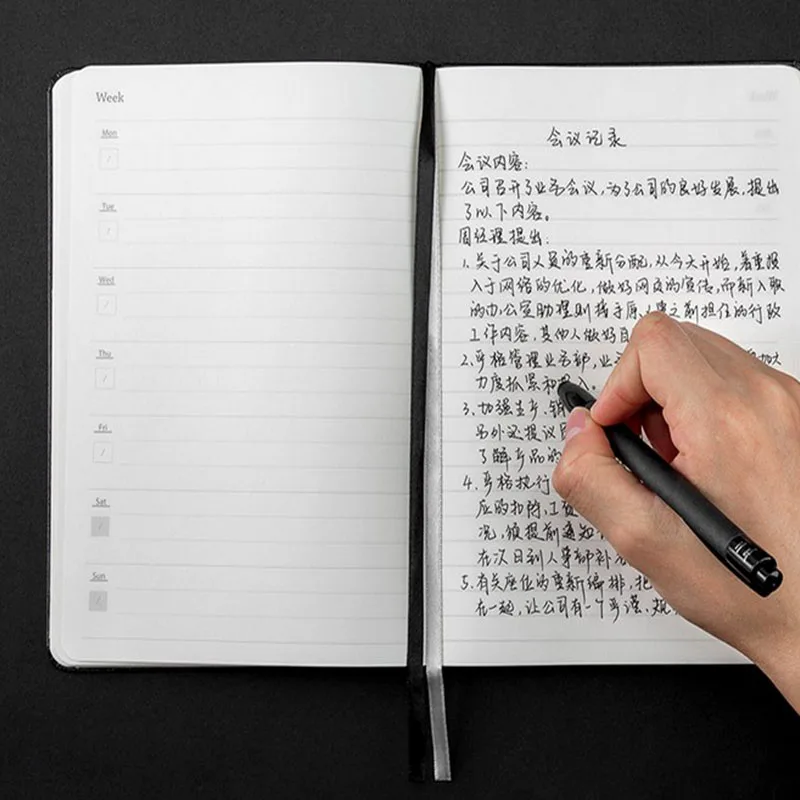 Week
Mon
Tue
Wed
Thu
Fri
Sat
Sun
会议记录
会议内容:
公司召开了业务会议,为了公司的良好发展,提出
了以下内容。
周经理提出:
1.关于公司人员的重新分配,从今天开始,着重投
入于网络的优化,做好网页的宣传,而新入职
的办公室助理则接手原人事之前担任的行政
工作内容,其他人做好自
2.严格管理业务部,业 加大
力度抓紧和
3.加强生产、销
另外还提议
了解产品的
4.严格执行
应的扣除,工资
况,须提前通知
在次日到人事部补
5.有关座位的重新编排,把
在一起,让公司有一个严谨、规